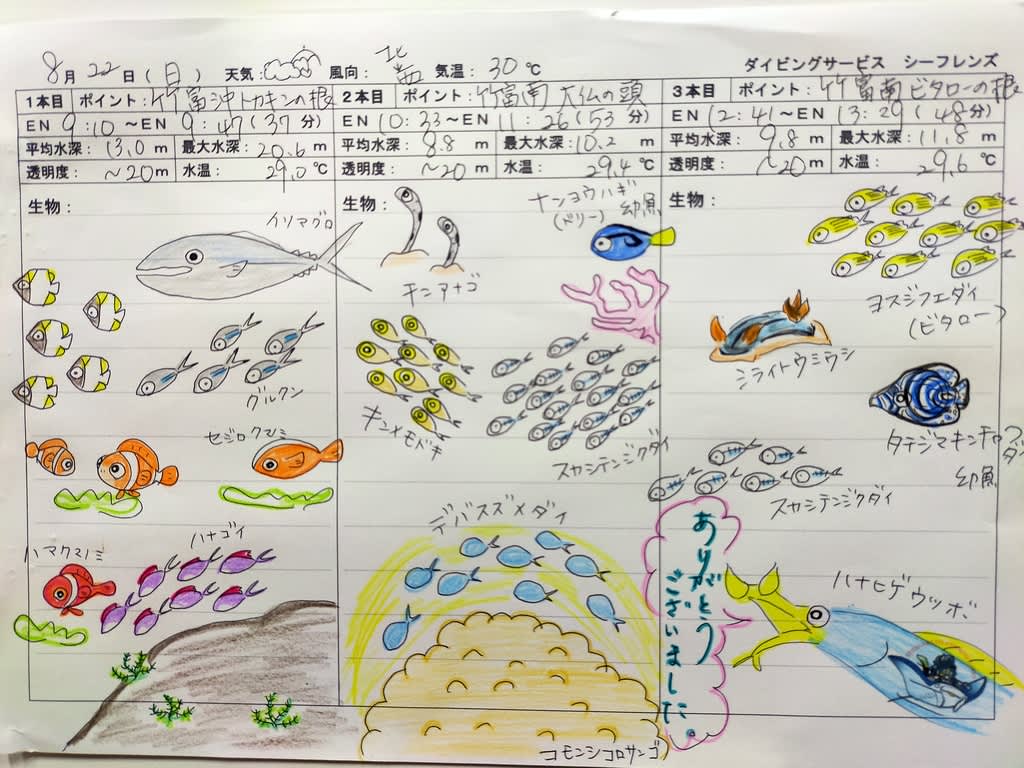 8月22日(日) 天気: 風向: 気温:30℃ ダイビングサービス シーフレンズ
1本目 ポイント:竹富沖トカキンの根
EN 9:10~EN 9:47(37分)
平均水深:13.0m 最大水深:20.6m
透明度:~20m 水温:29.0℃
生物:
イソマグロ
グルクン
セジロクマノミ
ハナゴイ
ハマクマノミ
2本目 ポイント:竹富南 大仏の頭
EN 10:33~EN 11:26(53分)
平均水深:8.8m 最大水深:10.2m
透明度:~20m 水温:29.4℃
生物:
ナンヨウハギ
(ドリー) 幼魚
チンアナゴ
キンメモドキ
スカシテンジクダイ
デバスズメダイ
コモンシコロサンゴ
3本目 ポイント:竹富南 ビタローの根
EN 12:41~EN 13:29(48分)
平均水深:9.8m 最大水深:11.8m
透明度:~20m 水温:29.6℃
生物:
ヨスジフエダイ
(ビタロー)
シライトウミウシ
タテジマキンチャクダイ
幼魚
スカシテンジクダイ
ハナヒゲウツボ
ありがとう
ございました。